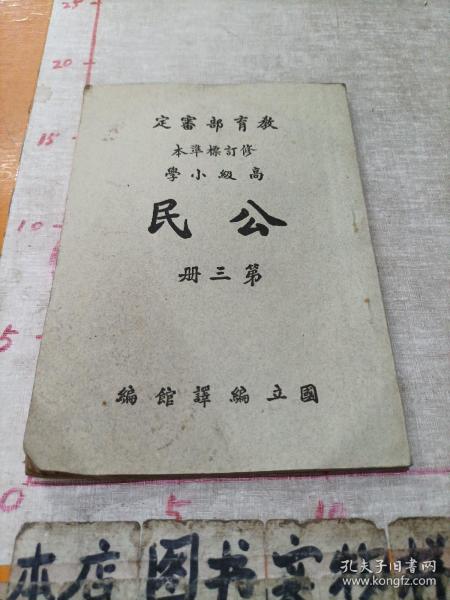 教育部審定
修訂標準本
高級小學
公民
第三册
國立編譯館編
25
20
15
10
5
0
5
10
本店图书实物拍
孔夫子旧书网
book.kongfz.com